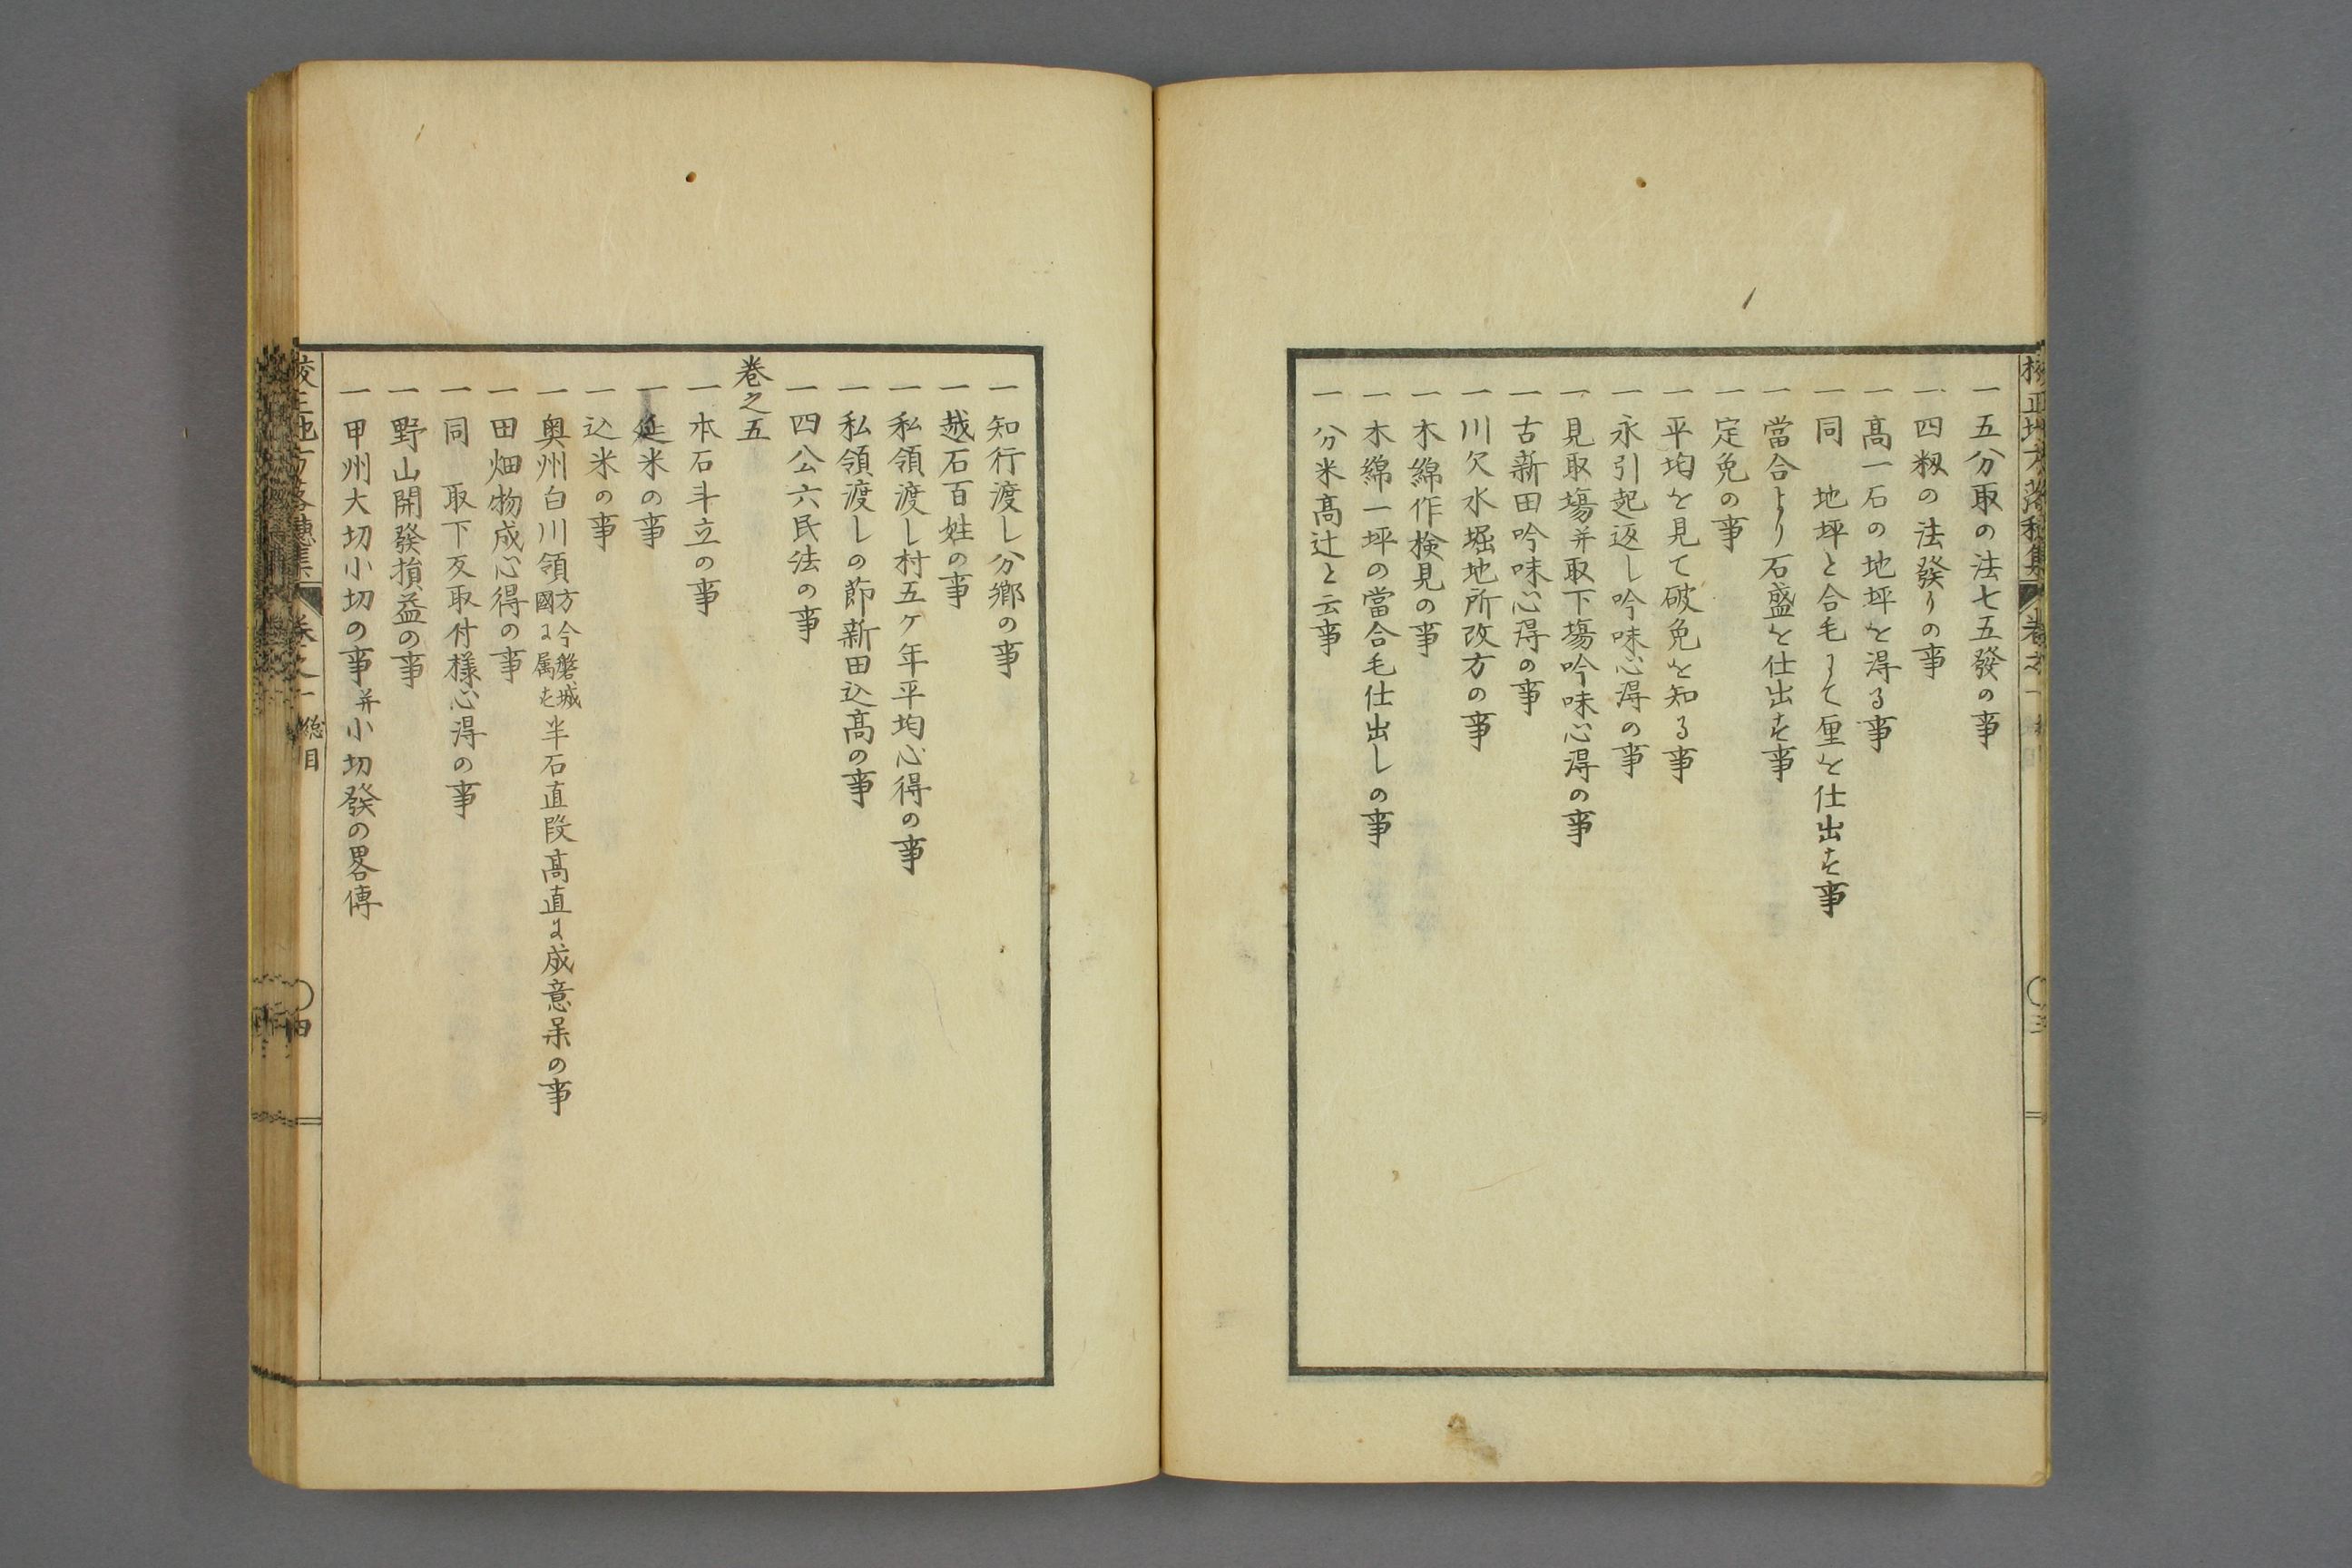 校正地方落穂集 卷之一
一 五分取の法七五發の事
一 四籾の法發りの事
一 高一石の地坪を得る事
一 同 地坪と合毛にて厘を仕出す事
一 當合より石盛を仕出す事
一 定免の事
一 平均を見て破免を知る事
一 永引起返し吟味心得の事
一 見取場并取下場吟味心得の事
一 古新田吟味心得の事
一 川欠水堀地所改方の事
一 木綿作検見の事
一 木綿一坪の當合毛仕出しの事
一 分米高辻と云事
一 知行渡し分郷の事
一 越石百姓の事
一 私領渡し村五ケ年平均心得の事
一 私領渡しの節新田込高の事
一 四公六民法の事
卷之五
一 本石斗立の事
一 延米の事
一 込米の事
一 奥州白川領方今磐城國に属す半石直段高直に成意呆の事
一 田畑物成心得の事
一 同 取下反取付様心得の事
一 野山開發損益の事
一 甲州大切小切の事并小切發の畧傳
校正地方落穂集 卷之一 総目 ○四